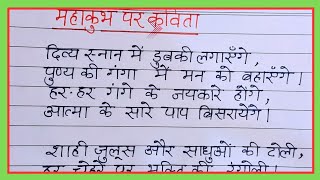 महाकुंभ पर कविता
दिव्य स्नान में डुबकी लगाएँगे,
पुण्य की गंगा में मन को बहाएँगे।
हर-हर गंगे के जयकारे होंगे,
आत्मा के सारे पाप बिसरायेंगे।
शाही जुलूस और साधुओं की टोली,
हर चेहरे पर भक्ति की रंगोली।